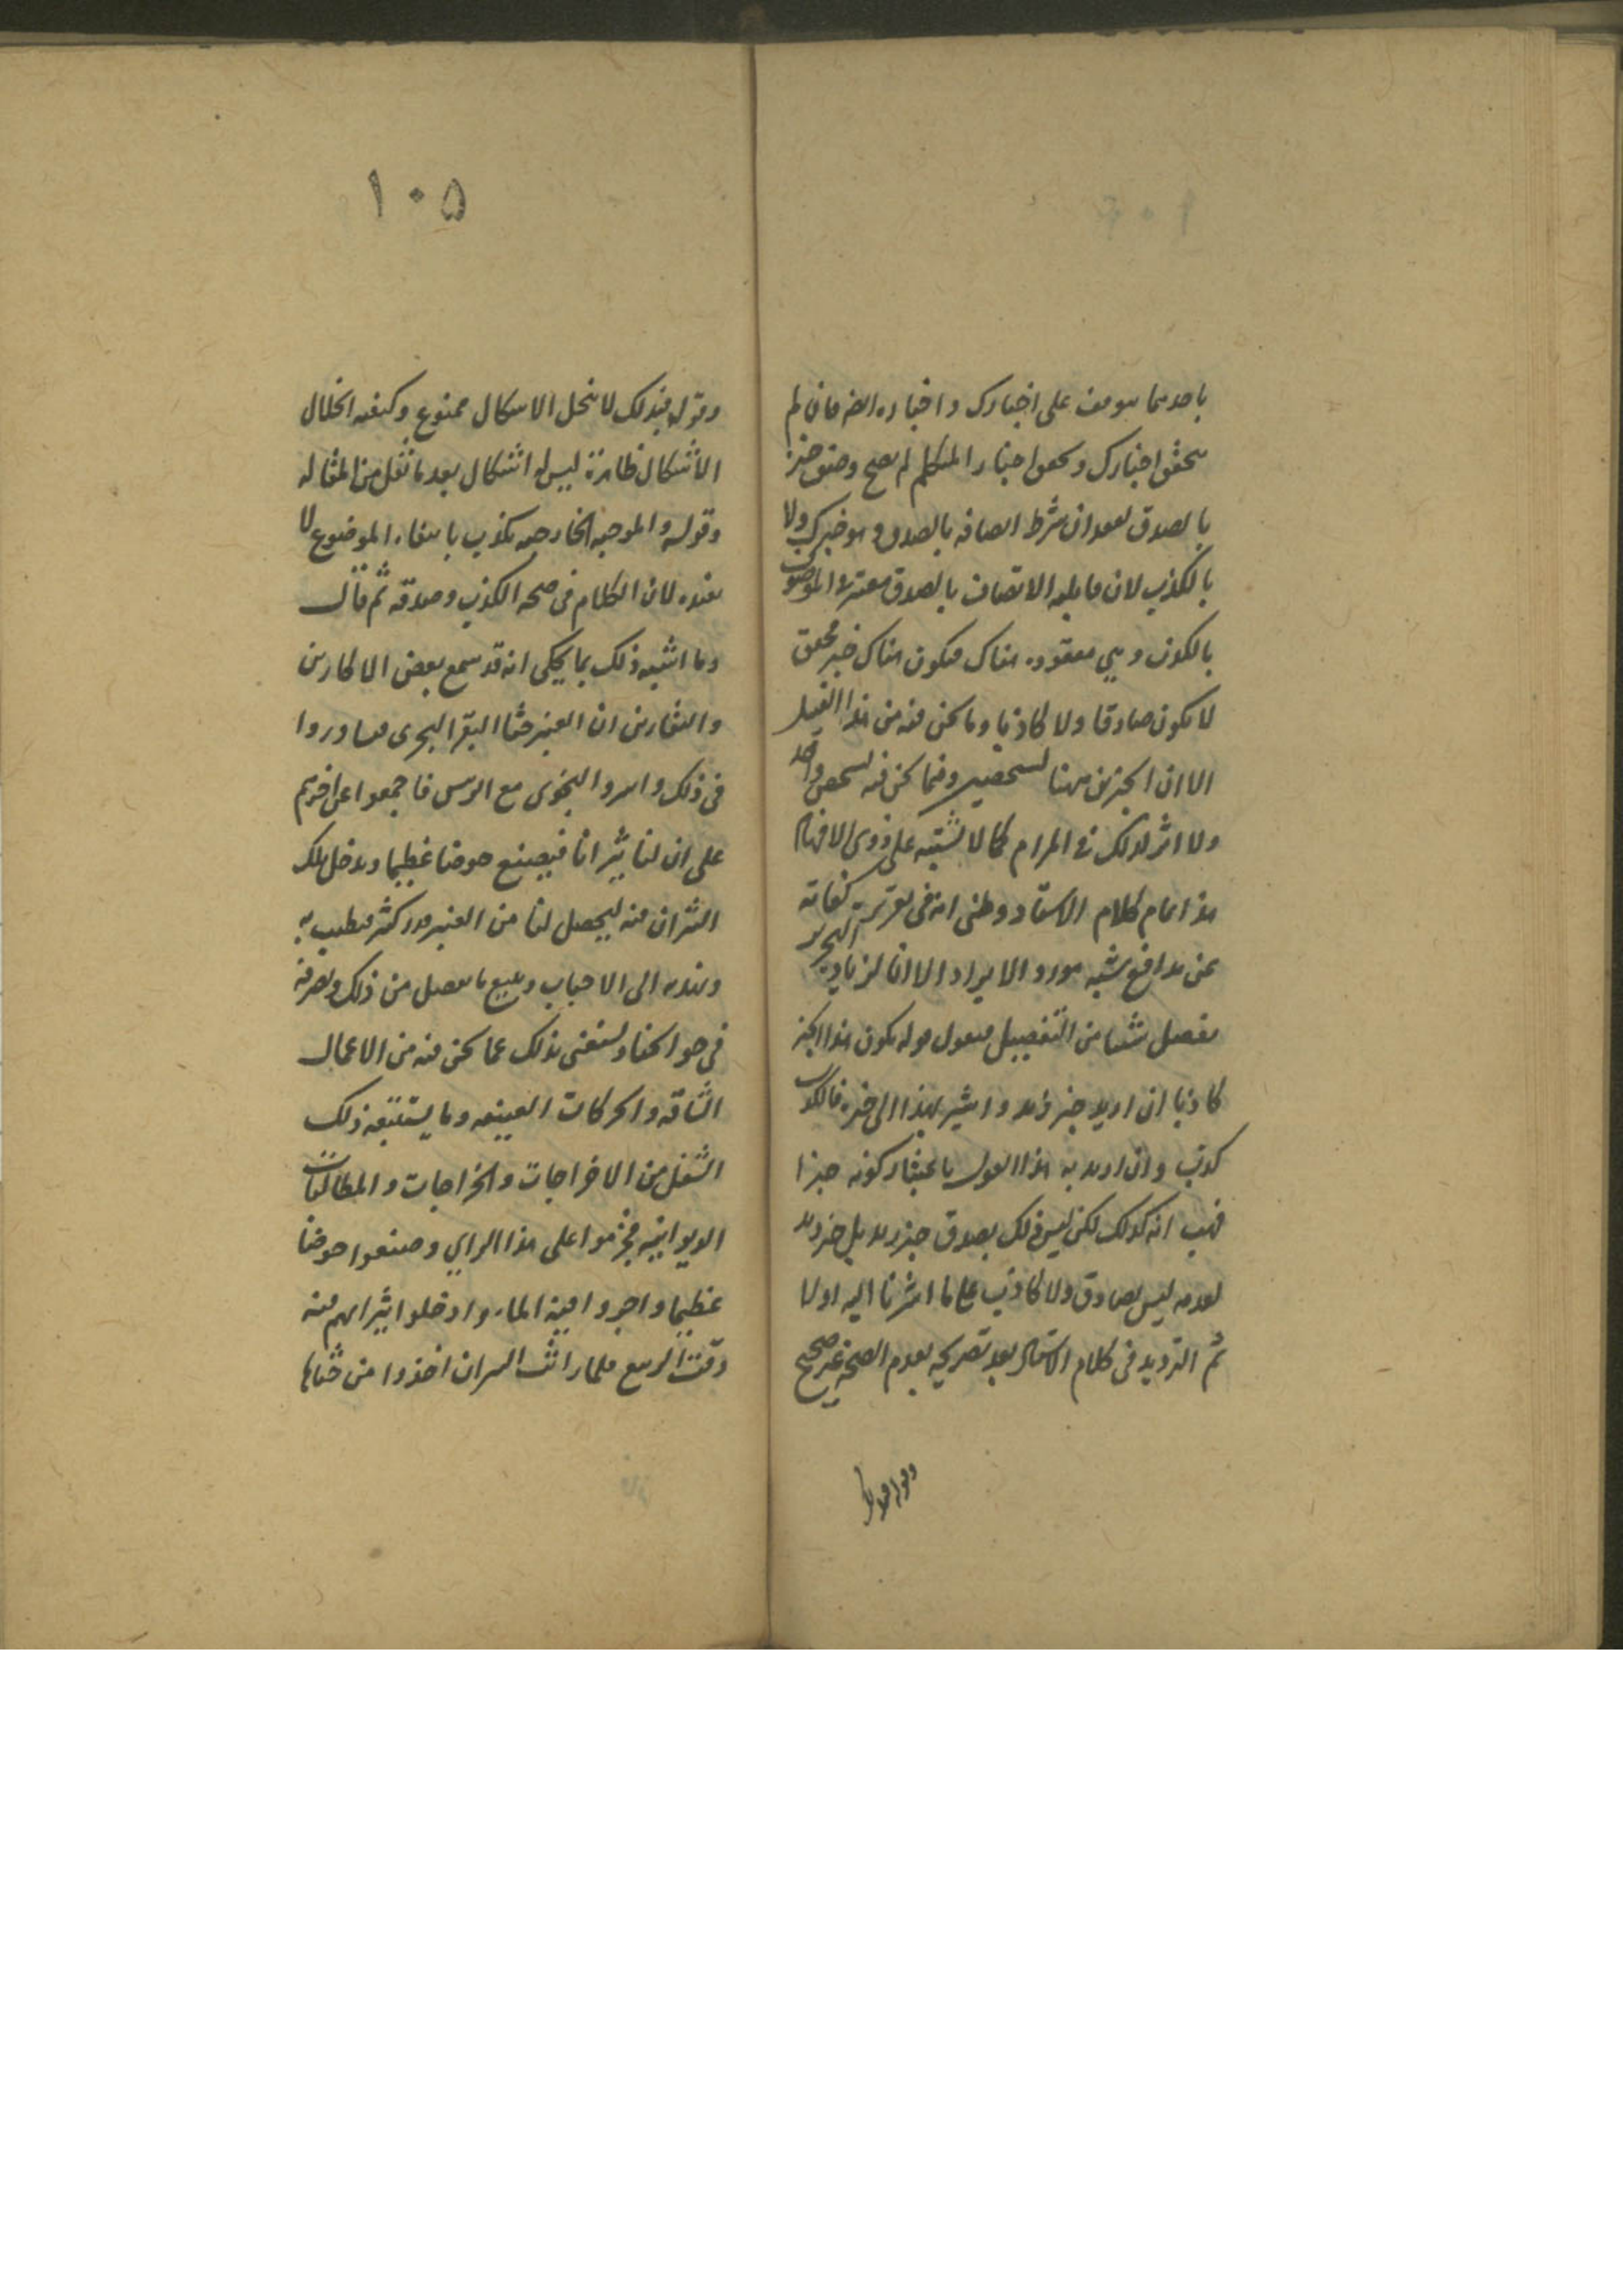 باحدهما يتوقف على اخبارك و اخباره ايضا فان لم
يتحقق اخبارك و تحقق اخبار المتكلم لم يصح وصف خبره
بالصدق لفقدان شرط اتصافه بالصدق و هو خبرك ولا
بالكذب لان قابلية الاتصاف بالصدق معتبرة في الموصوف
بالكذب و هي مفقودة هناك فيكون هناك خبر محقق
لا يكون صادقا ولا كاذبا وما نحن فيه من هذا القبيل
الا ان الخبرين ههنا لشخصين و فيما نحن فيه لشخص واحد
ولا اثر لذلك في المرام كما لا يشتبه على ذوي الافهام
هذا تمام كلام الاستاد وظني انه في تقريره كفاية
عن تدافع شبه مورد الايراد الا انا لزيادة التحرير
نفصل شيئا من التفصيل فنقول قوله يكون هذا الخبر
كاذبا ان اريد خبر زيد و اشير بهذا الى خبره فالكذب
كذب وان اريد به هذا القول باعتبار كونه خبرا
فهب انه كذلك لكن ليس ذلك بصدق خبر زيد بل خبر زيد
بعدمه ليس بصادق ولا كاذب على ما اشرنا اليه اولا
ثم الترديد في كلام الاستاد بعد تصريحه بعدم الصحة غير صحيح
وقوله فبذلك
١٠٥
وقوله فبذلك لا ينحل الاشكال ممنوع وكيفية انحلال
الاشكال ظاهرة ليس له اشكال بعد ما نقل من المقاله
وقوله و الموجبة الخارجيه تكذب بانتفاء الموضوع لا
يفيده لان الكلام في صحة الكذب و صدقه ثم قال
وما اشبه ذلك بما يحكى انه قد سمع بعض الاكارين
و الثفارين ان العنبر خثا البقر البحري فتشاوروا
في ذلك و اسروا النجوى مع الرئيس فاجمعوا عن اخرهم
على ان لنا ثيرانا فيصنع حوضا عظيما و يدخل تلك
الثيران فيه ليحصل لنا من العنبر قدر كثير فنطيب به
ونهديه الى الاحباب و نبيع ما يفضل من ذلك ونصرفه
في حوائجنا و نستغني بذلك عما نحن فيه من الاعمال
الشاقه و الحركات العنيفه وما يستتبعه ذلك
الشغل من الاخراجات و الخراجات و المطالبات
الديوانيه فجزموا على هذا الراي و صنعوا حوضا
عظيما و اجروا فيه الماء و ادخلوا ثيرانهم فيه
وقت الربيع فلما راثت الثيران اخذوا من خثاها